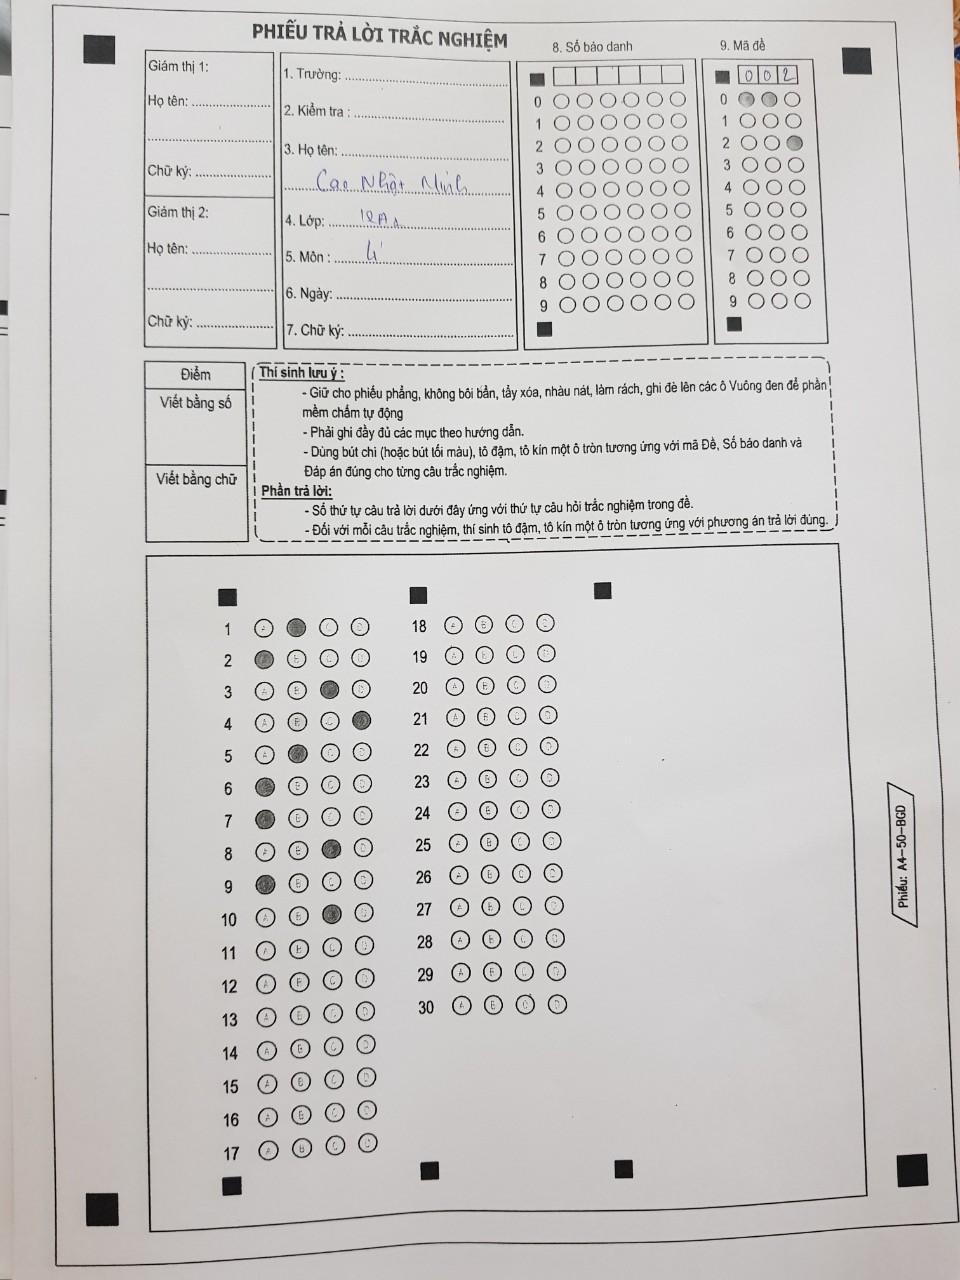 PHIẾU TRẢ LỜI TRẮC NGHIỆM
Giám thị 1:
Họ tên:
Chữ ký:
Giám thị 2:
Họ tên:
Chữ ký:
1. Trường:
2. Kiểm tra :
3. Họ tên:
Cao Nhật Minh
4. Lớp:
5. Môn : Lí
6. Ngày:
7. Chữ ký:
8. Số báo danh
0
1
2
3
4
5
6
7
8
9
9. Mã đề
0 0 2
0
1
2
3
4
5
6
7
8
9
Điểm
Viết bằng số
Viết bằng chữ
Thí sinh lưu ý :
- Giữ cho phiếu phẳng, không bôi bẩn, tẩy xóa, nhàu nát, làm rách, ghi đè lên các ô Vuông đen để phần
mềm chấm tự động
- Phải ghi đầy đủ các mục theo hướng dẫn.
- Dùng bút chì (hoặc bút tối màu), tô đậm, tô kín một ô tròn tương ứng với mã Đề, Số báo danh và
Đáp án đúng cho từng câu trắc nghiệm.
Phần trả lời:
- Số thứ tự câu trả lời dưới đây ứng với thứ tự câu hỏi trắc nghiệm trong đề.
- Đối với mỗi câu trắc nghiệm, thí sinh tô đậm, tô kín một ô tròn tương ứng với phương án trả lời đúng.
1 A C D
2 B C D
3 A B D
4 A B C
5 A C D
6 B C D
7 B C D
8 A B D
9 B C D
10 A B D
11 A B C D
12 A B C D
13 A B C D
14 A B C D
15 A B C D
16 A B C D
17 A B C D
18 A B C D
19 A B C D
20 A B C D
21 A B C D
22 A B C D
23 A B C D
24 A B C D
25 A B C D
26 A B C D
27 A B C D
28 A B C D
29 A B C D
30 A B C D
Phiếu: A4-50-BGD